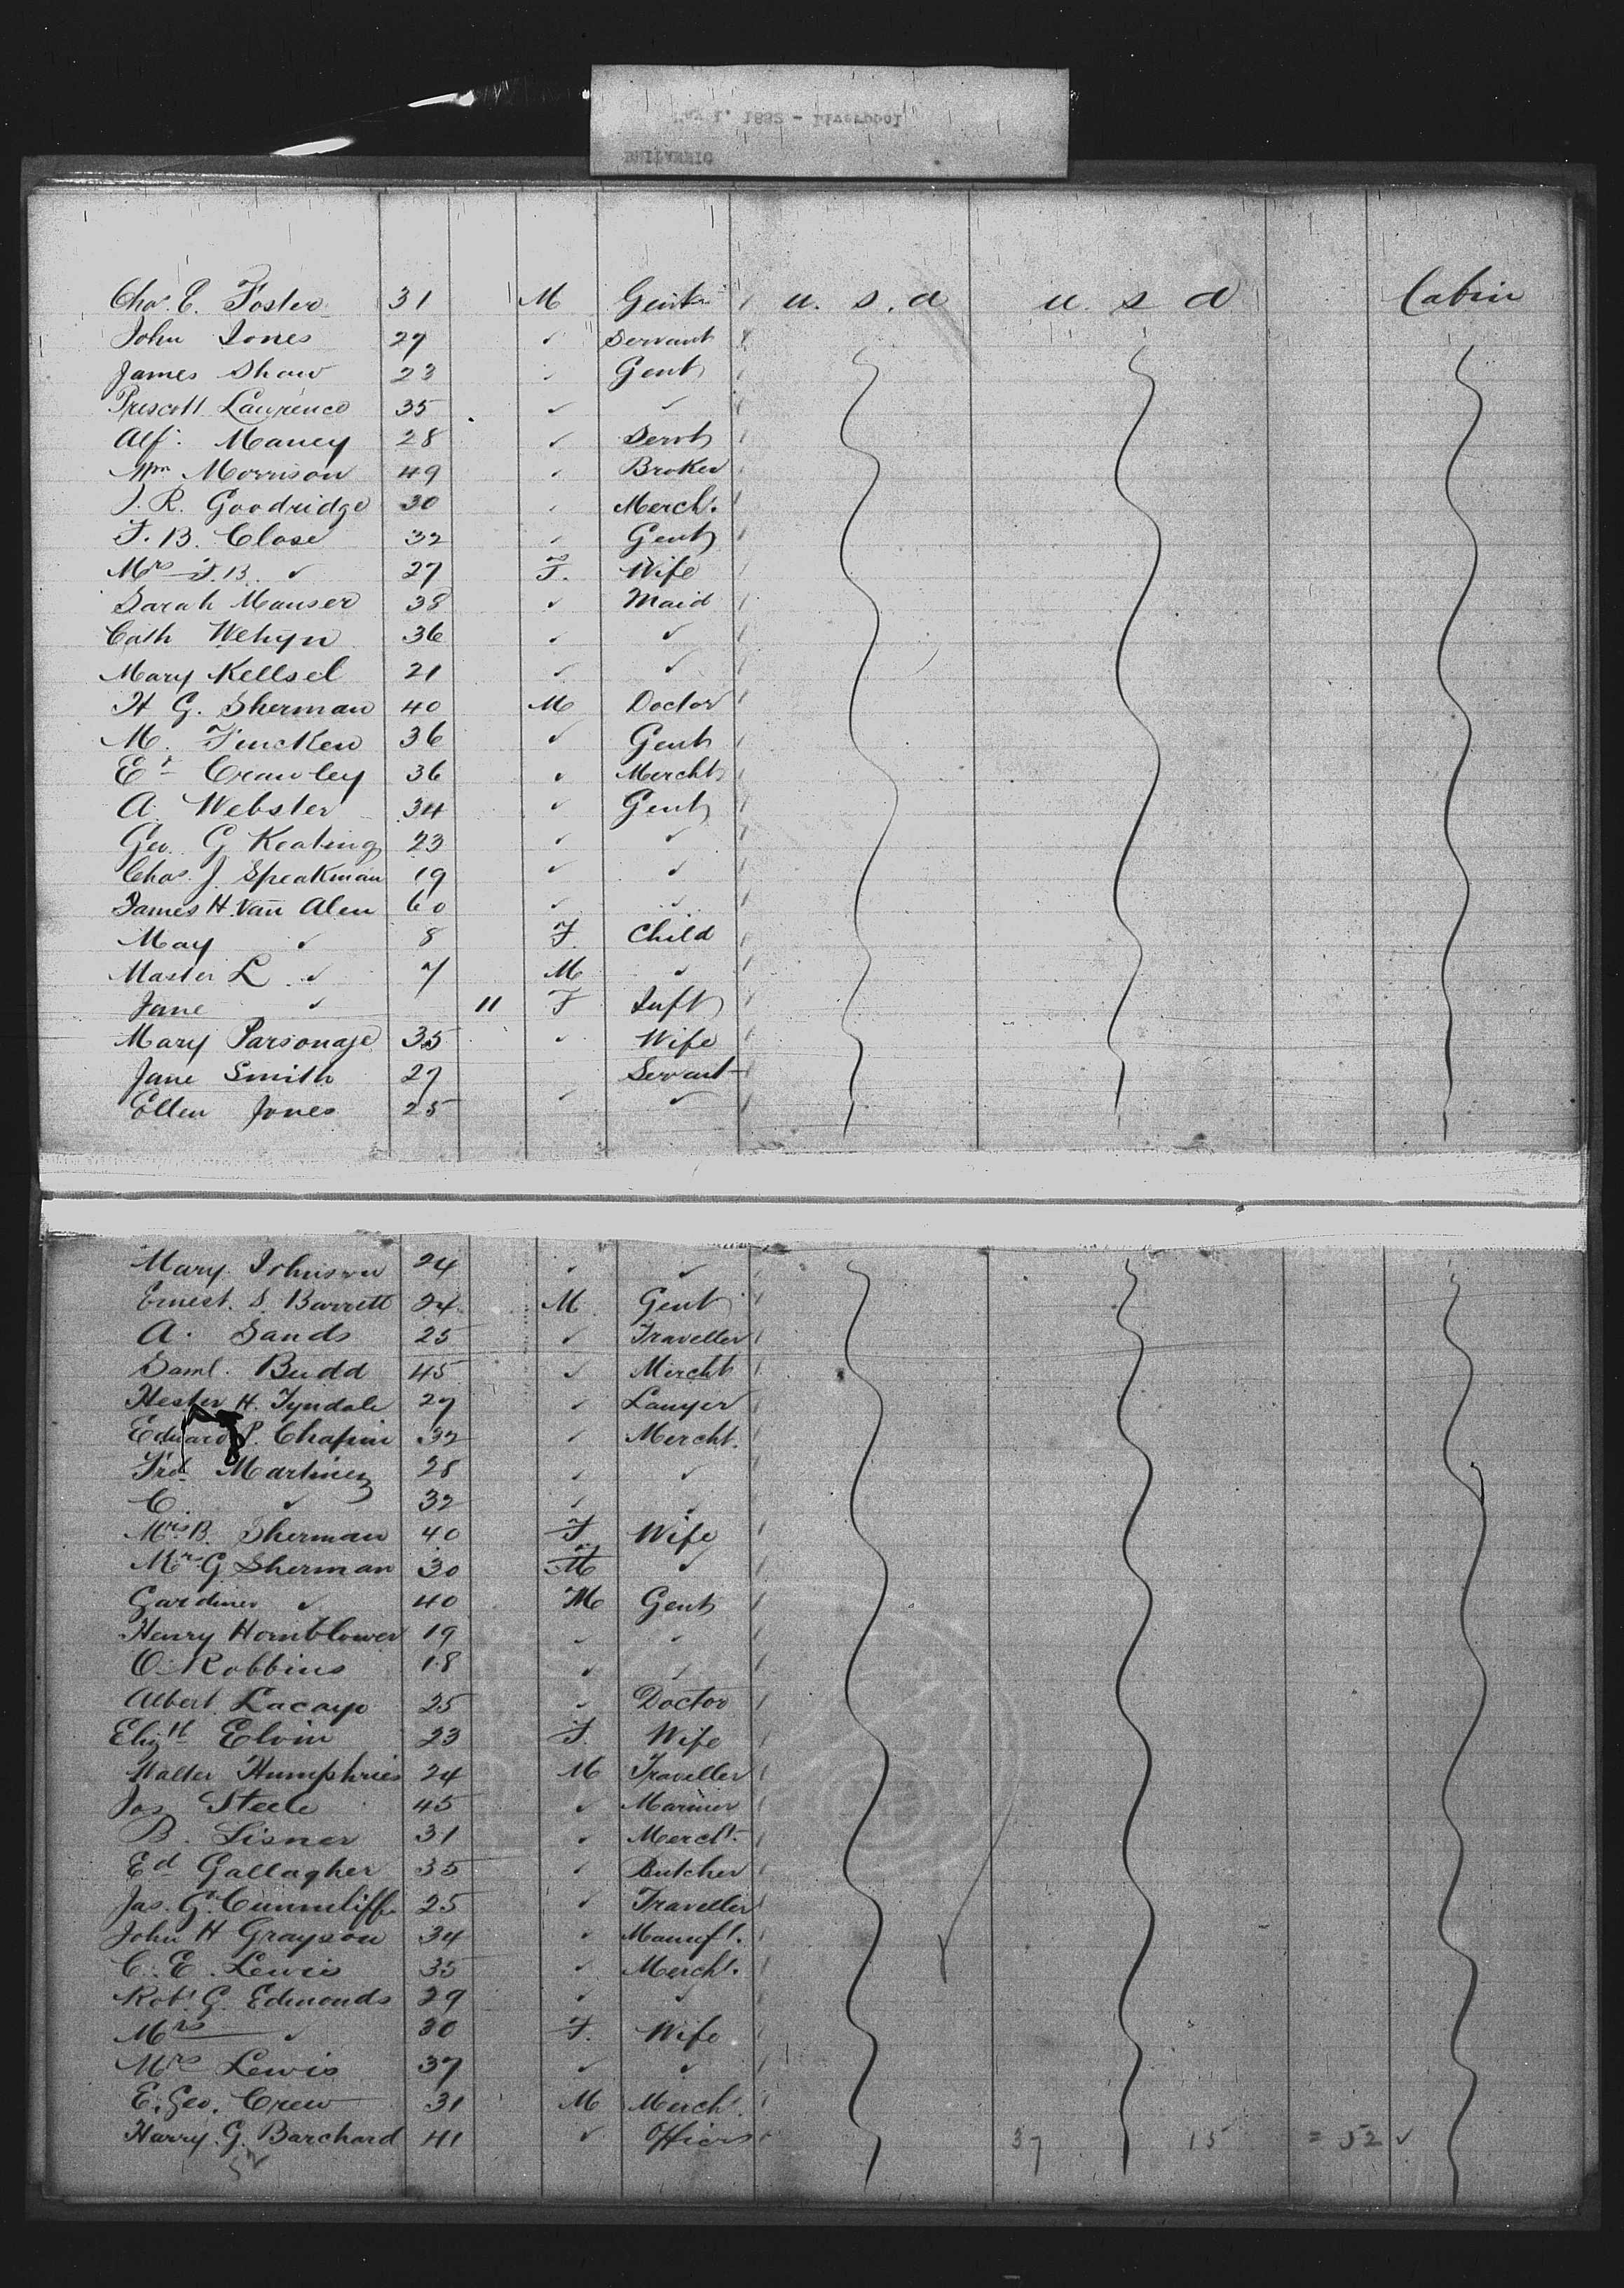 May 1, 1882 - Liverpool
BRITANNIC
Chas. E. Foster 31 M Gent u. s. a u. s a Cabin
John Jones 27 ✓ Servant
James Shaw 23 ✓ Gent
Prescott Laurence 35 ✓ ✓
Alf. Maney 28 ✓ Servt
Wm Morrison 49 ✓ Broker
J. R. Goodridge 30 ✓ Mercht.
F. B. Close 32 ✓ Gent
Mrs F. B. ✓ 27 F. Wife
Sarah Manser 38 ✓ Maid
Cath 36 ✓ ✓
Mary Kellsel 21 ✓ ✓
H G. Sherman 40 M Doctor
M. Fincken 36 ✓ Gent
Ed Crawley 36 ✓ Mercht
A. Webster 34 ✓ Gent
Geo. G Keating 23 ✓ ✓
Chas. J. Speakman 19 ✓ ✓
James H. Van Alen 60 ✓ ✓
May ✓ 8 F. Child
Master L ✓ 7 M ✓
Jane ✓ 11 F Inft
Mary Parsonage 35 ✓ Wife
Jane Smith 27 Servant
Ellen Jones 25 ✓ ✓
Mary Johnson 24 ✓ ✓
Ernest. S. Barrett 24 M. Gent
A. Sands 25 ✓ Traveller
Saml. Budd 45 ✓ Mercht
H. Tyndale 27 ✓ Lawyer
Edward P. Chapin 32 ✓ Mercht.
Fred Martinez 28 ✓ ✓
C. ✓ 32 ✓ ✓
Mrs B. Sherman 40 F Wife
Mrs G Sherman 30 ✓
Gardiner ✓ 40 M Gent
Henry Hornblower 19 ✓ ✓
O. Robbins 18 ✓ ✓
Albert Lacayo 25 ✓ Doctor
Elizth Elvin 23 F. Wife
Walter Humphries 24 M Traveller
Jos Steele 45 ✓ Mariner
B. Lisner 31 ✓ Mercht.
Ed Gallagher 35 ✓ Butcher
Jas. G. Cunncliffe 25 ✓ Traveller
John H Grayson 34 ✓ Manuft.
C. E. Lewis 35 ✓ Mercht.
Robt G. Edmonds 29 ✓ ✓
Mrs ✓ 30 F. Wife
Mrs Lewis 37 ✓ ✓
E. Geo. Crew 31 M Mercht.
Harry. G. Barchard 41 ✓ Officer 37 15 = 52 ✓
52